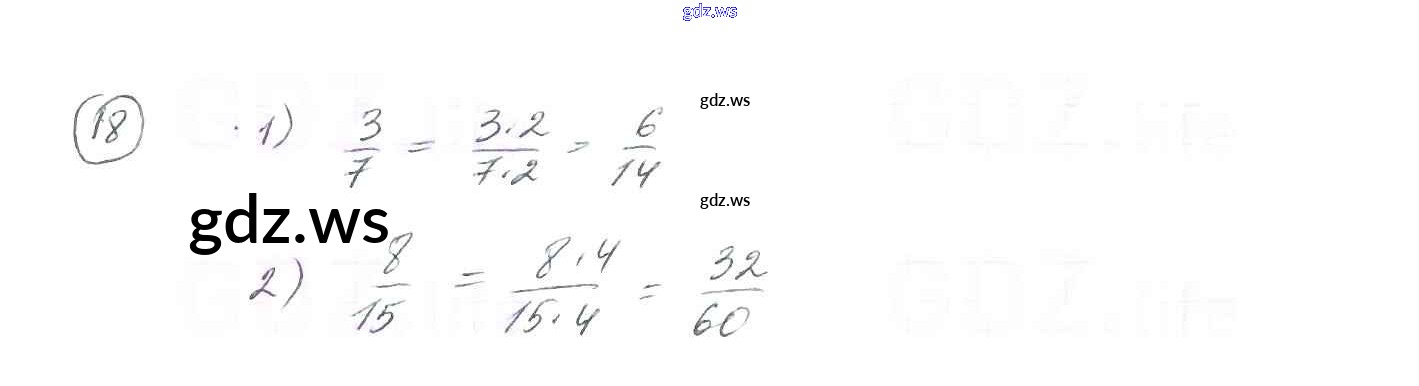 gdz.ws
18 1) 3/7 = 3·2/7·2 = 6/14
gdz.ws
gdz.ws
gdz.ws
2) 8/15 = 8·4/15·4 = 32/60
GDZ.life
GDZ.life
GDZ.life
GDZ.life